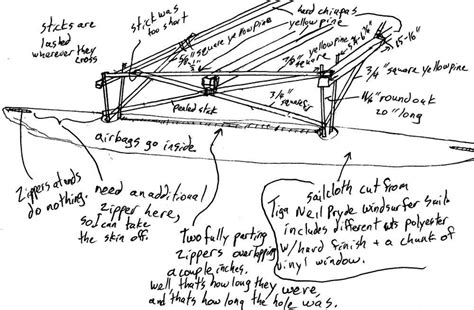 sticks are
lashed
wherever they
cross
stick was
too short
hard chiapas
yellow pine
5/8" square yellow pine
yellow pine
square
15-16"
3/4" square yellow pine
peeled stick
3/4"
square
1 1/4" round oak
20" long
airbags go inside
Zippers at ends
do nothing.
need an additional
zipper here,
so I can take
the skin off.
Two fully parting
zippers overlapping
a couple inches.
well, thats how long they were,
and thats how long the hole was.
sailcloth cut from
Tiga Neil Pryde windsurfer sail
includes different wts polyester
w/hard finish + a chunk of
vinyl window.